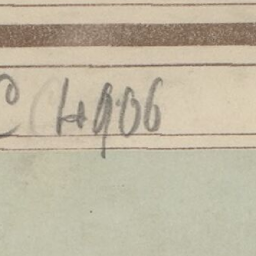 C H906